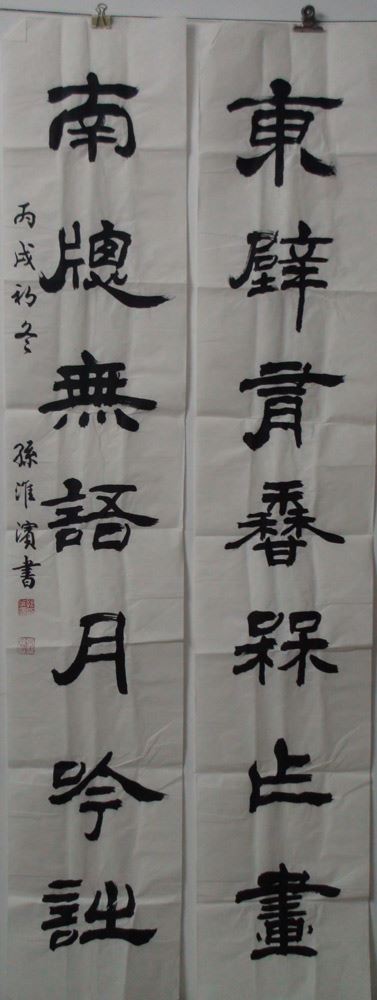 東壁有香槑乍畫
南牕無語月吟詩
丙戌初冬 孫淮濱書